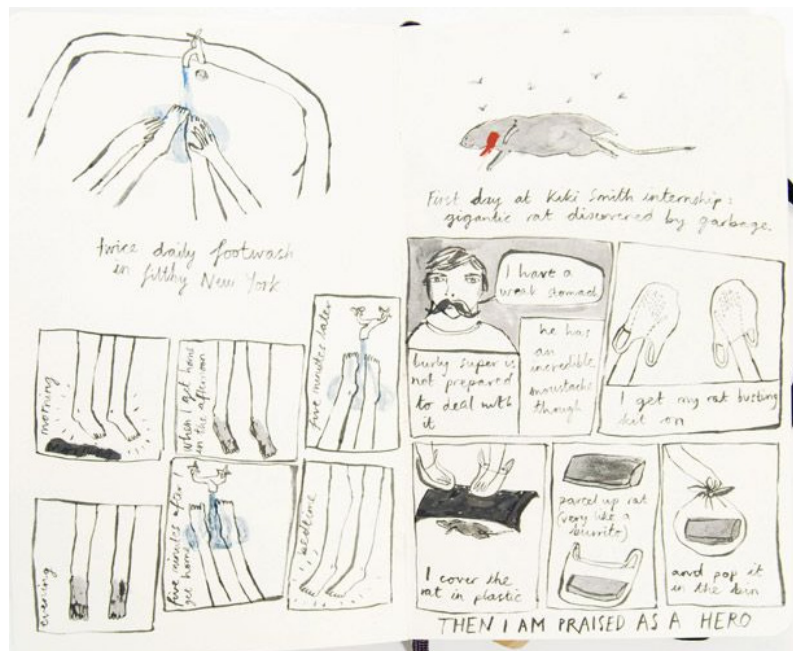 twice daily footwash
in filthy New York
morning
when I get home
in the afternoon
five minutes later
evening
five minutes after
get home
bedtime
First day at Kiki Smith internship:
gigantic rat discovered by garbage.
I have a
weak stomach
burly super is
not prepared
to deal with
it
he has
an
incredible
moustache
though
I get my rat busting
kit on
I cover the
rat in plastic
parcel up rat
(very like a
burrito)
and pop it
in the bin
THEN I AM PRAISED AS A HERO